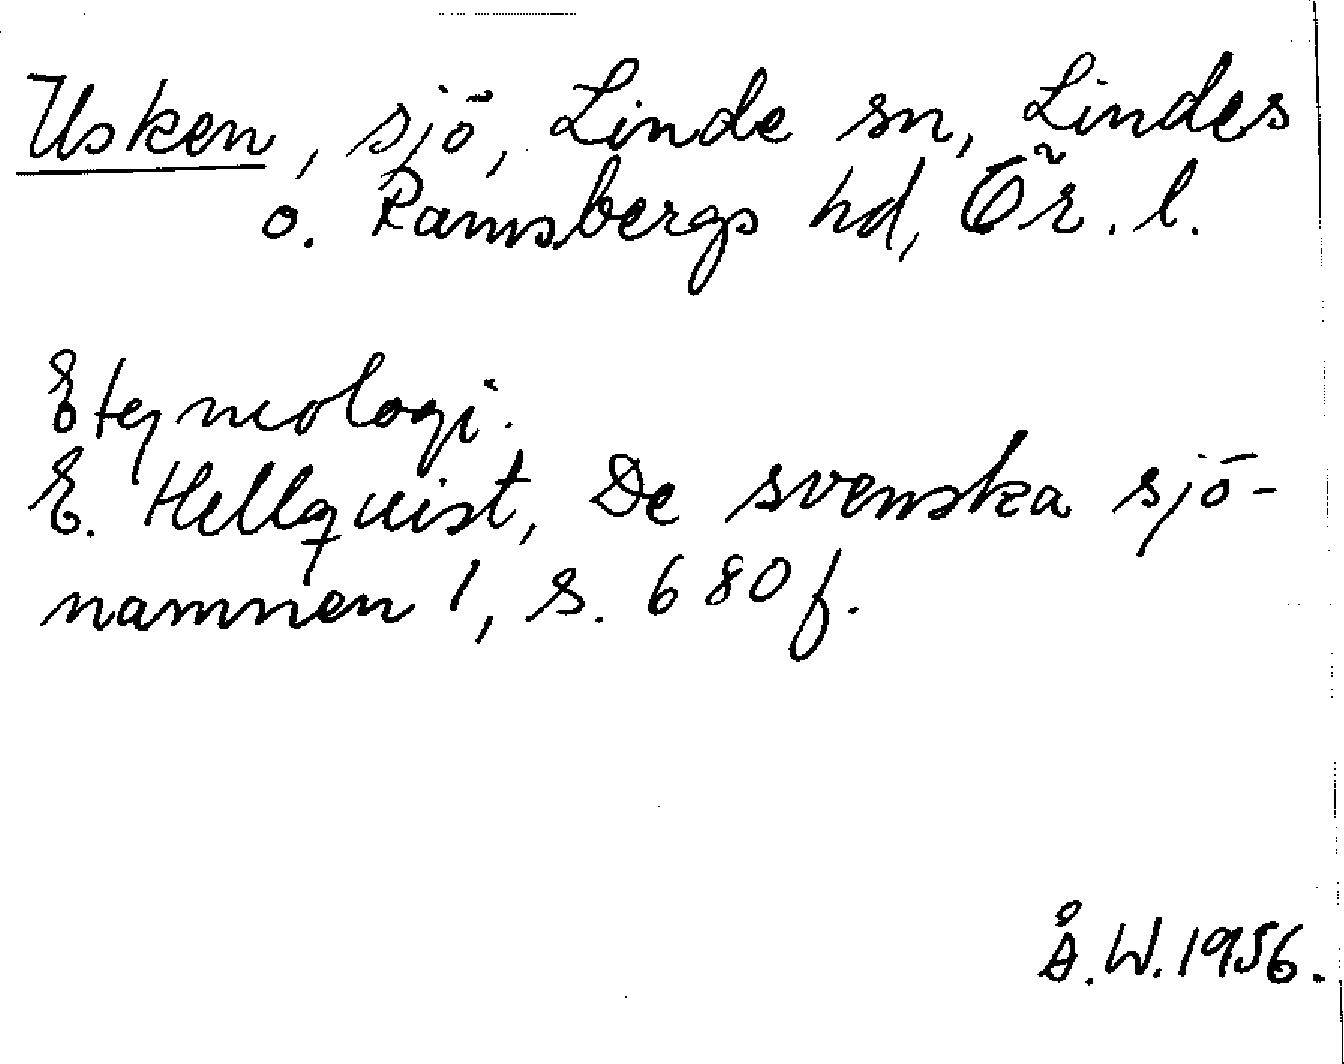 Usken, sjö, Linde sn, Lindes
o. Ramsbergs hd, Ör. l.
Etymologi.
E. Hellquist, De svenska sjö-
namnen 1, s. 680 f.
Å.W. 1956.